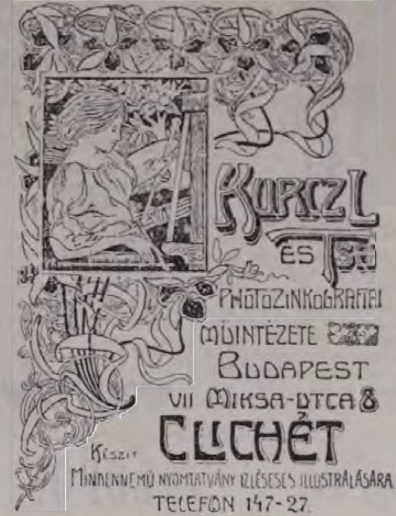 KURCZ L
ÉS TSA
PHOTOZINKOGRAFIAI
MŰINTÉZETE
BUDAPEST
VII MIKSA-UTCA 8
KÉSZIT CLICHÉT
MINDENNEMŰ NYOMTATVÁNY IZLÉSESES ILLUSTRÁLÁSÁRA
TELEFON 147-27.